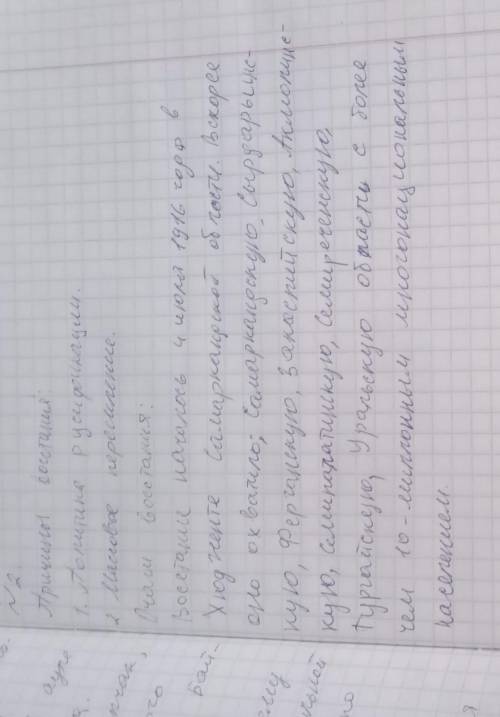 №2.
Причины восстания:
1. Политика русификации.
2. Массовое переселение.
Очаги восстания:
Восстание началось 4 июля 1916 года в
Ходженте Самаркандской области. Вскоре
оно охватило: Самаркандскую, Сырдарьинс-
кую, Ферганскую, Закаспийскую, Акмолинс-
кую, Семипалатинскую, Семиреченскую,
Тургайскую, Уральскую области с более
чем 10-миллионным многонациональным
населением.
ауле
бай-